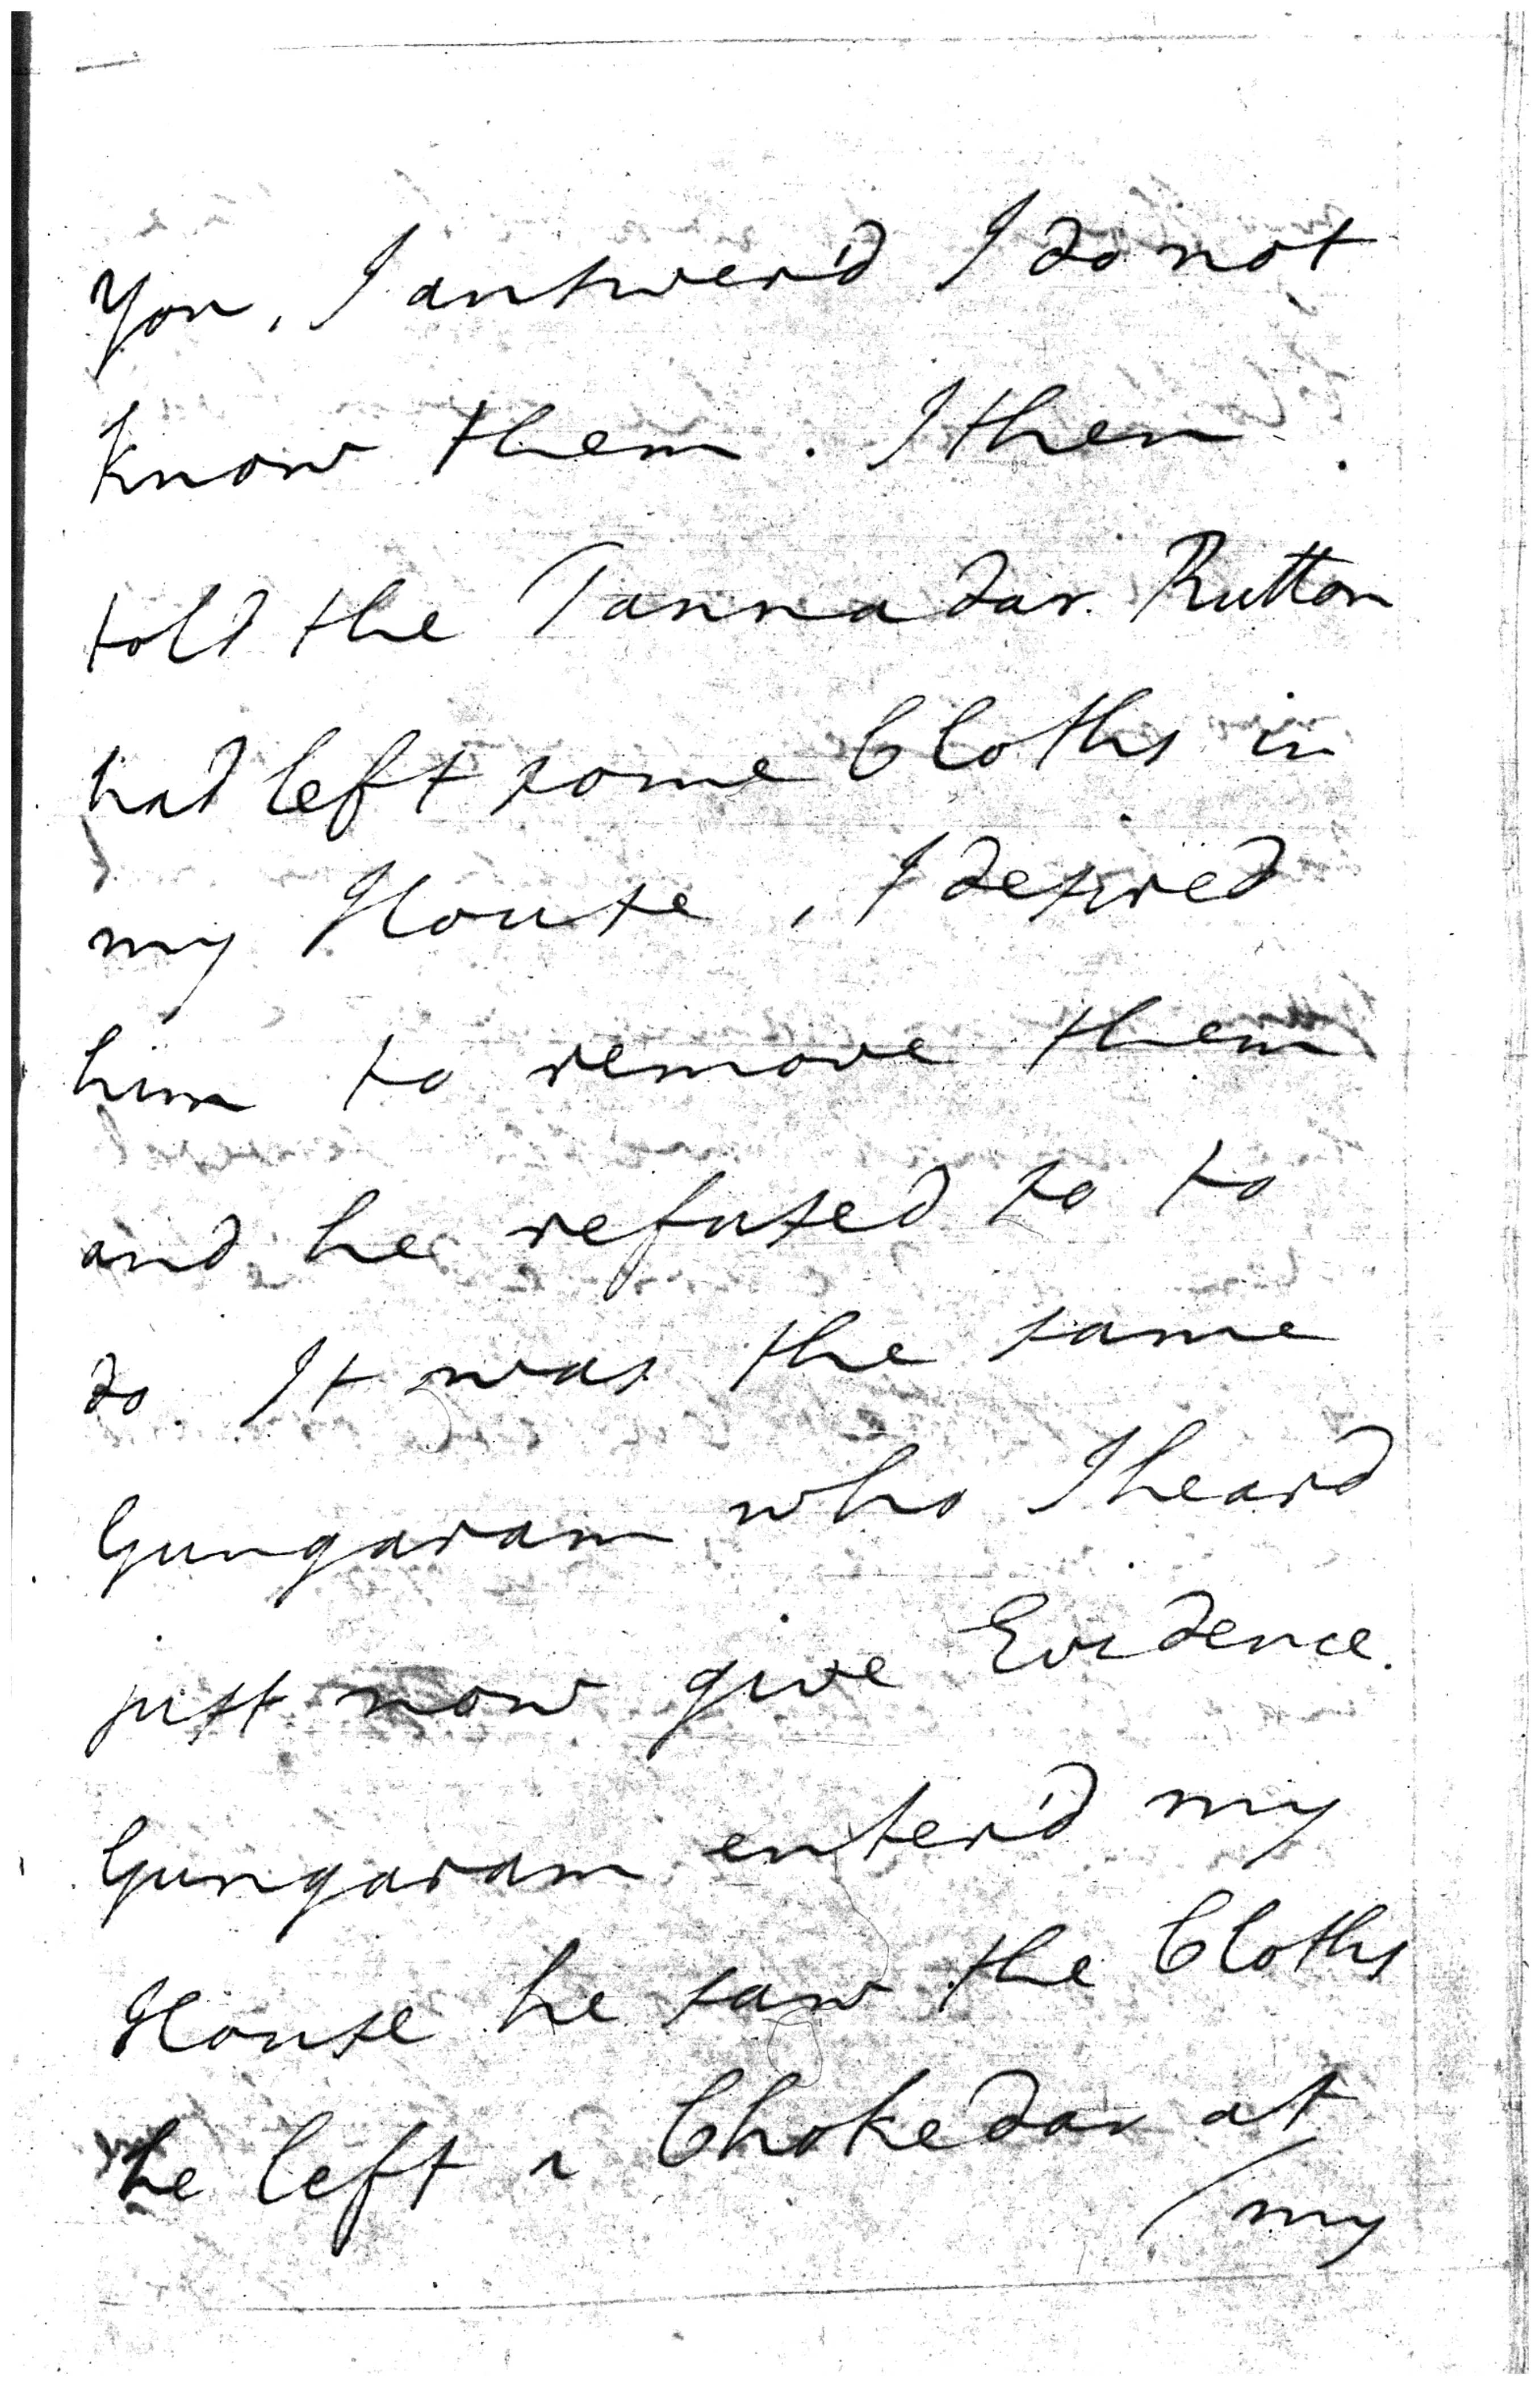 You, I answer'd I do not
know them. I then
told the Tannadar Rutton
had left some Cloths in
my House, I desired
him to remove them
and he refused so to
do. It was the same
Gungaram who I heard
just now give Evidence.
Gungaram enter'd my
House he saw the Cloths
he left a Chokedar at
my